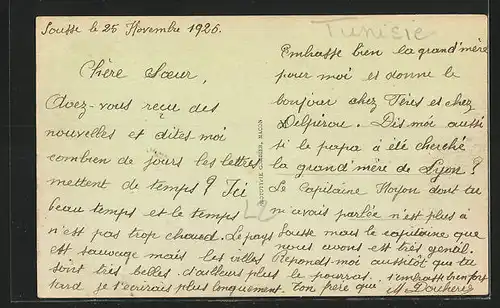 Sousse le 25 Novembre 1925.
Tunisie
Chère Sœur,
Avez-vous reçu des
nouvelles et dites moi
combien de jours les lettres
mettent de temps? Ici
beau temps et le temps
n'est pas trop chaud. Le pays
est sauvage mais les villes
sont très belles. d'ailleurs plus
tard je t'écrirais plus longuement.
Embrasse bien la grand'mère
pour moi et donne le
bonjour chez et chez
Delpérou. Dis moi aussi
si le papa à été cherché
la grand'mère de Lyon?
Le Capitaine dont tu
m'avais parlée n'est plus à
Sousse mais le capitaine que
nous avons est très gentil.
Réponds-moi aussitôt que tu
le pourras. t'embrasse bien fort
ton père que
L2
COMBIER, MACON